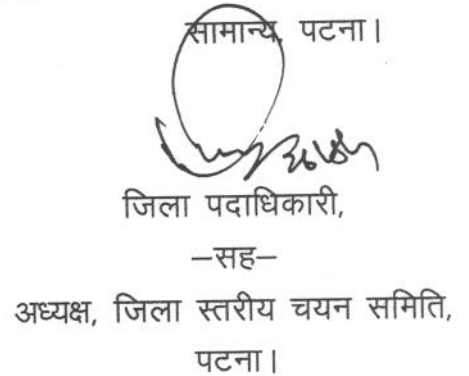 सामान्य, पटना।
जिला पदाधिकारी,
–सह–
अध्यक्ष, जिला स्तरीय चयन समिति,
पटना।